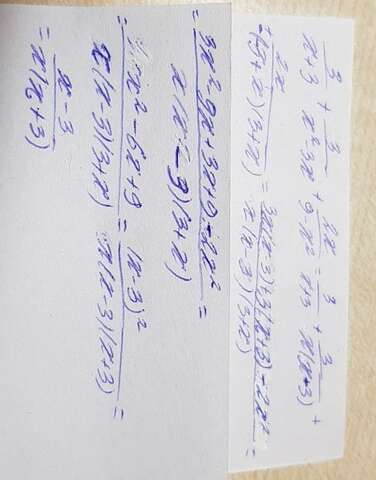 3/(x+3) + 3/(x²-3x) + 2x/(9-x²) = 3/(x+3) + 3/(x(x-3)) +
+ 2x/((3-x)(3+x)) = (3x(x-3)+3(x+3)-2x²)/(x(x-3)(3+x)) =
= (3x²-9x+3x+9-2x²)/(x(x-3)(3+x)) =
= (x²-6x+9)/(x(x-3)(3+x)) = (x-3)²/(x(x-3)(x+3)) =
= (x-3)/(x(x+3))